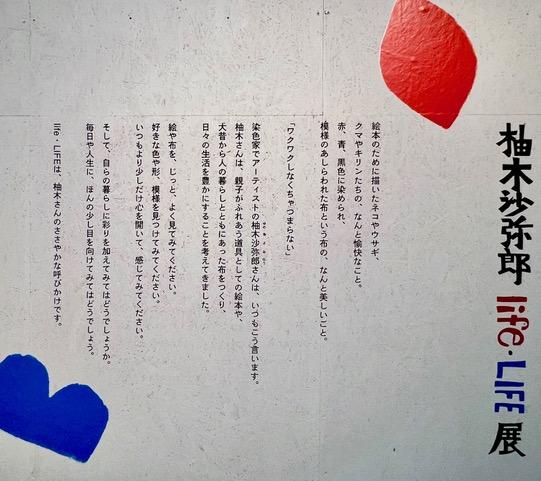 柚木沙弥郎 life・LIFE 展
絵本のために描いたネコやウサギ、
クマやキリンたちの、なんと愉快なこと。
赤、青、黒色に染められ、
模様のあしらわれた布という布の、なんと美しいこと。
「ワクワクしなくちゃつまらない」
染色家でアーティストの柚木沙弥郎さんは、いつもこう言います。
柚木さんは、親子がふれあう道具としての絵本や、
大昔から人の暮らしとともにあった布をつくり、
日々の生活を豊かにすることを考えてきました。
絵や布を、じっと、よく見てみてください。
好きな色や形、模様を見つけてみてください。
いつもより少しだけ心を開いて、感じてみてください。
そして、自らの暮らしに彩りを加えてみてはどうでしょうか。
毎日や人生に、ほんの少し目を向けてみてはどうでしょう。
life・LIFEは、柚木さんのささやかな呼びかけです。